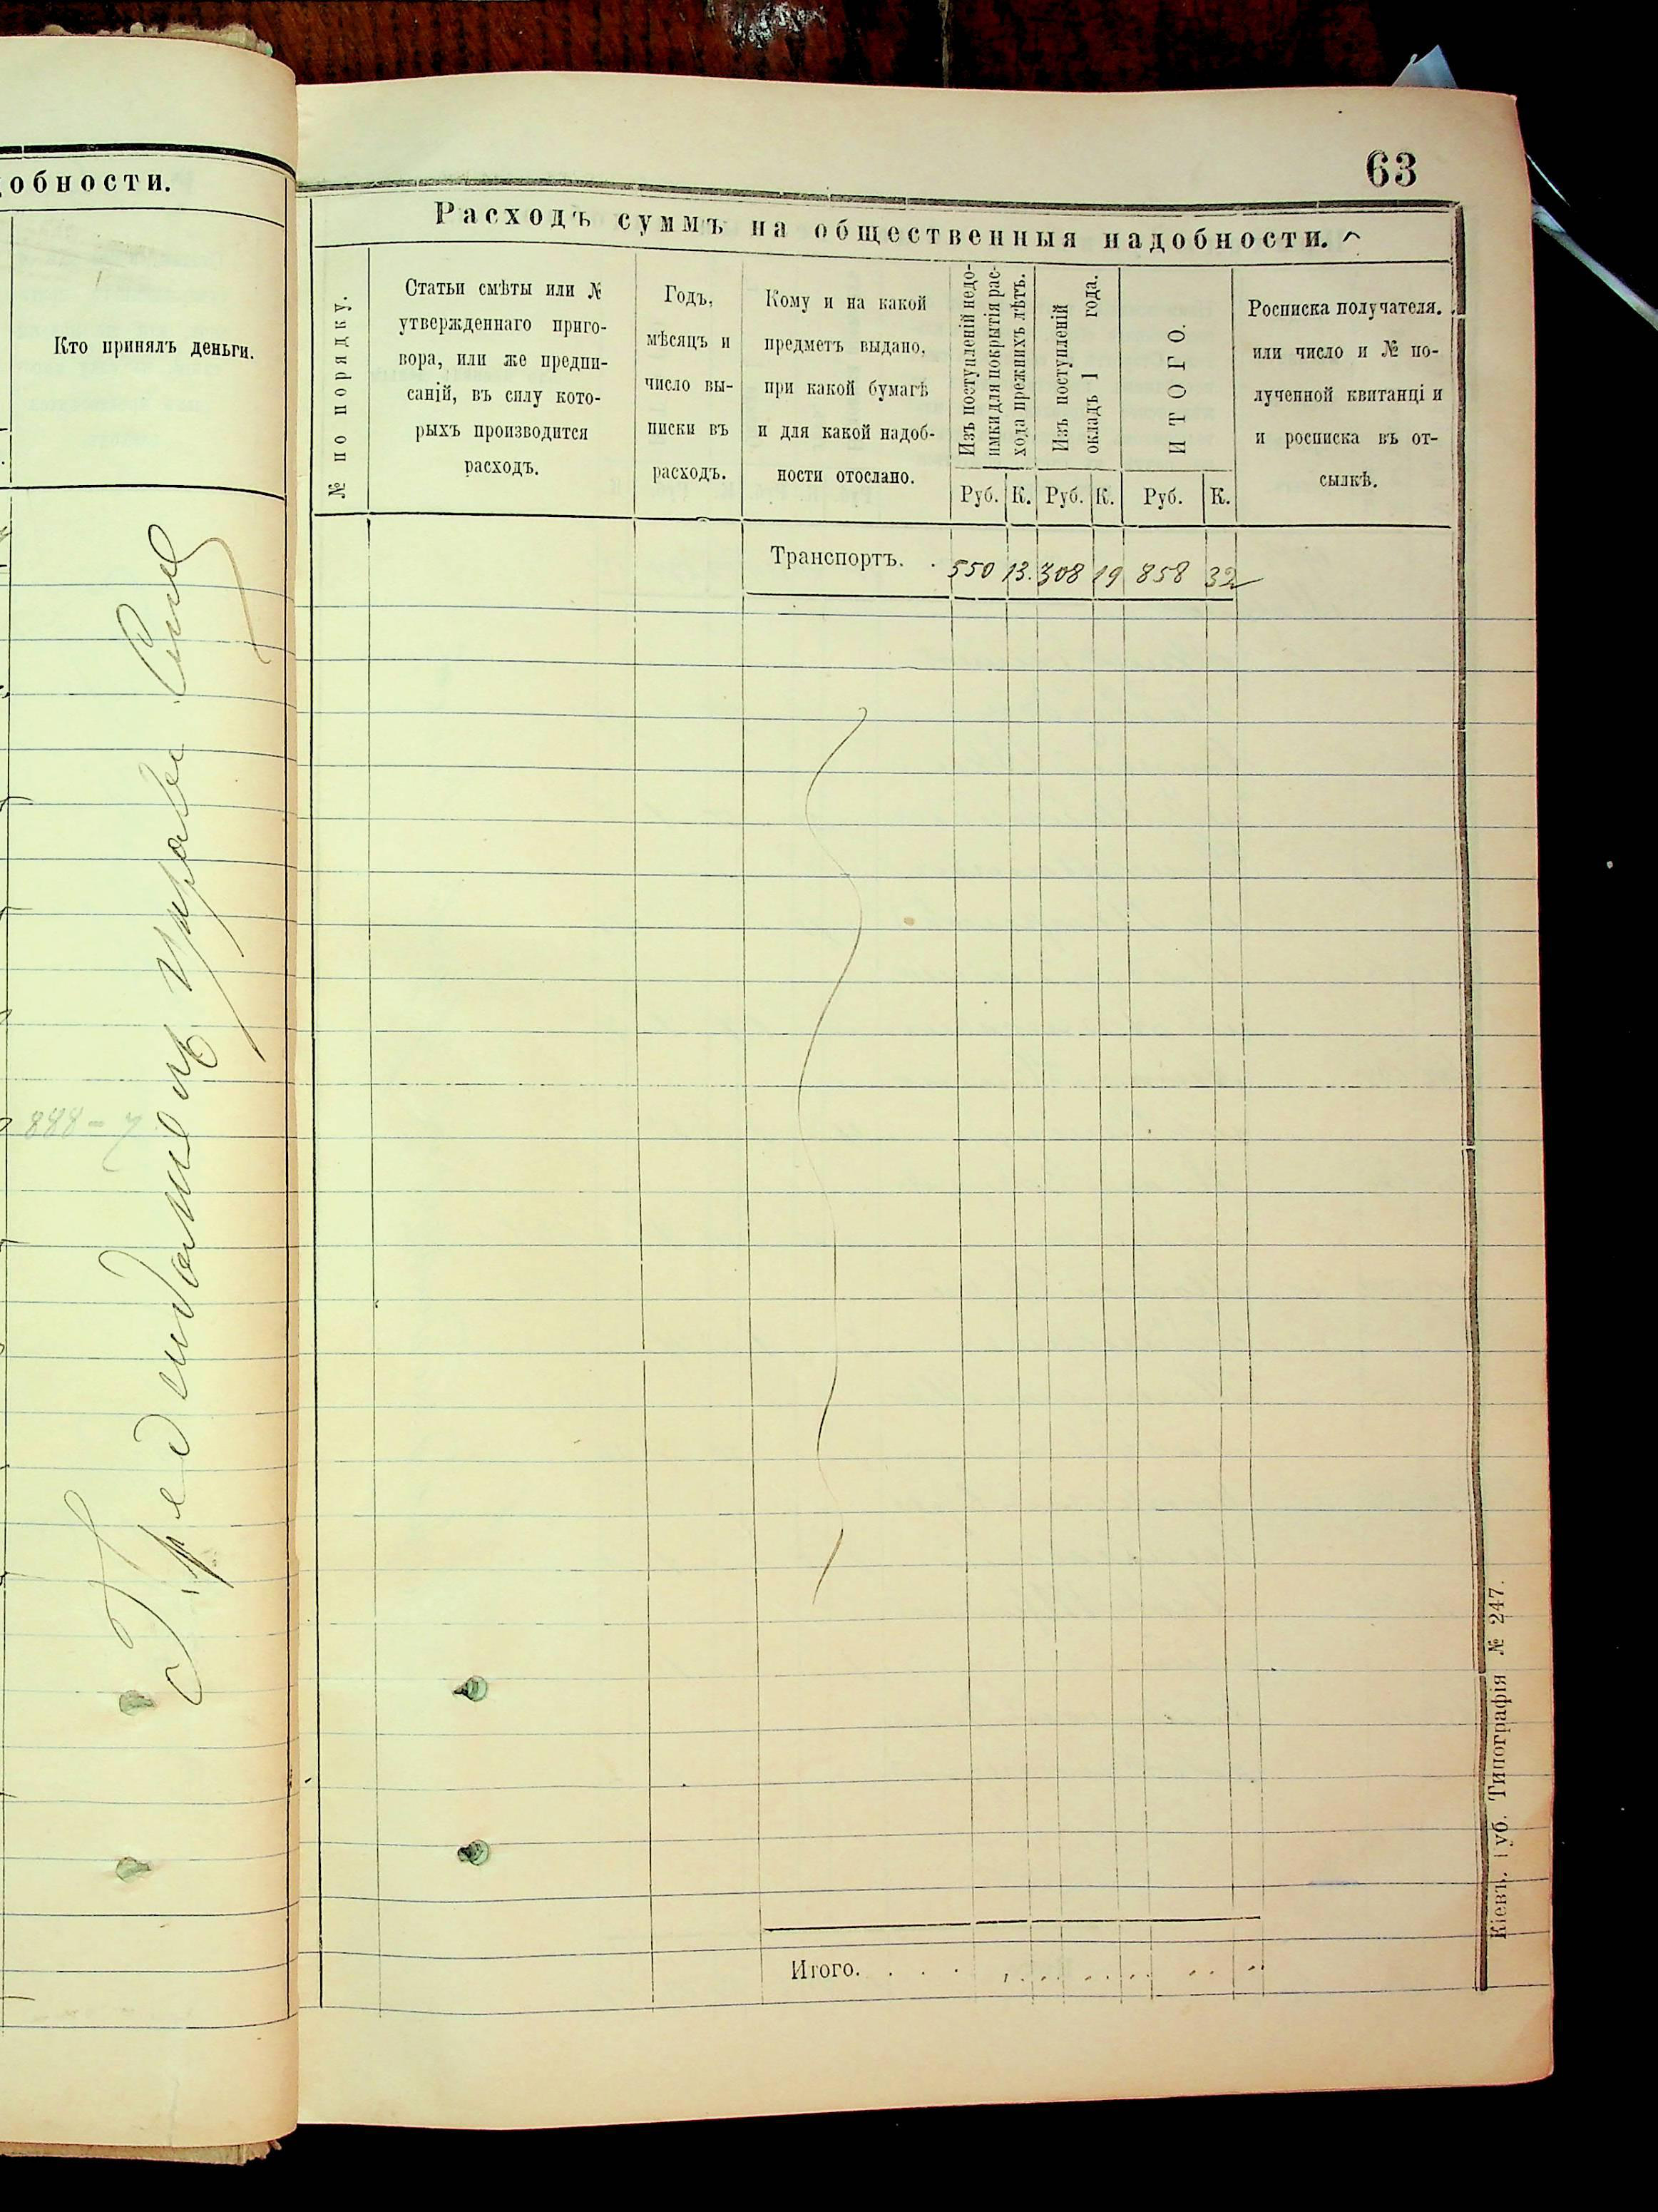 обности.
Кто принялъ деньги.
888-7
63
Расходъ суммъ на общественныя надобности.
№ по порядку.
Статьи смѣты или №
утвержденнаго приго-
вора, или же предпи-
саній, въ силу кото-
рыхъ производится
расходъ.
Годъ,
мѣсяцъ и
число вы-
писки въ
расходъ.
Кому и на какой
предметъ выдано,
при какой бумагѣ
и для какой надоб-
ности отослано.
Изъ поступленій недо-
имки для покрытія рас-
хода прежнихъ лѣтъ.
Изъ поступленій
окладъ 1 года.
ИТОГО.
Росписка получателя.
или число и № по-
лученной квитанці и
и росписка въ от-
сылкѣ.
Руб. К. Руб. К. Руб. К.
Транспортъ. . 550 13. 308 19 858 32
Итого. . . . .
Кіевъ. Губ. Типографія № 247.